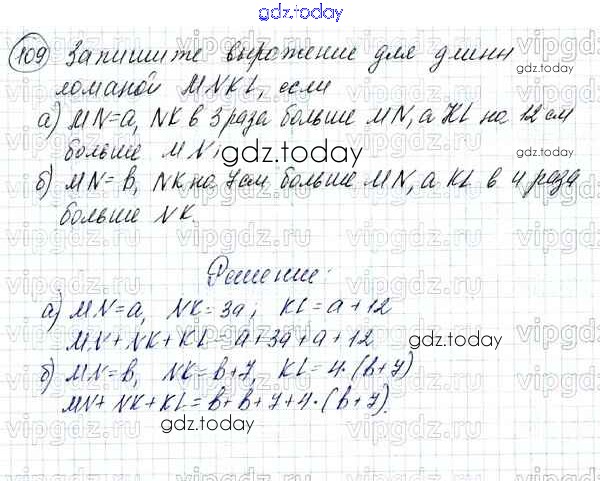 gdz.today
109 Запишите выражение для длины
ломаной MNKL, если
gdz.today
а) MN=a, NK в 3 раза больше MN, а KL на 12 см
больше MN;
gdz.today
б) MN=b, NK на 7 см больше MN, а KL в 4 раза
больше NK.
gdz.today
Решение:
а) MN=a, NK=3a; KL=a+12
MN+NK+KL=a+3a+a+12
gdz.today
б) MN=b, NK=b+7, KL=4·(b+7)
MN+NK+KL=b+b+7+4·(b+7).
gdz.today
vipgdz.ru